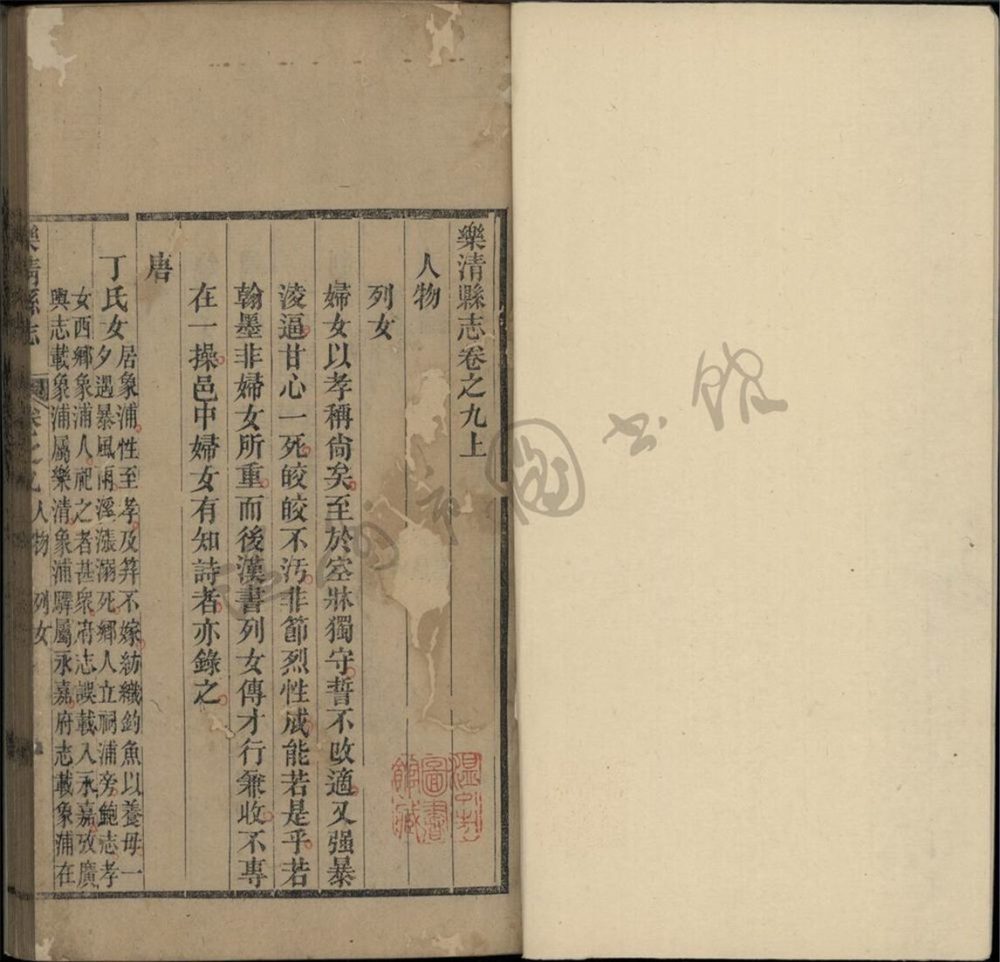 樂清縣志卷之九上
人物
列女
婦女以孝稱尚矣至於空牀獨守誓不改適又强暴
淩逼甘心一死皎皎不汚非節烈性成能若是乎若
翰墨非婦女所重而後漢書列女傳才行兼收不專
在一操邑中婦女有知詩者亦錄之
唐
丁氏女
居象浦性至孝及笄不嫁紡織釣魚以養母一
夕遇暴風雨溪漲溺死鄉人立祠浦旁鮑志孝
女西鄉象浦人祀之者甚衆府志誤載入永嘉攷廣
輿志載象浦屬樂清象浦驛屬永嘉府志載象浦在
樂清縣志
卷之九人物 列女
一
溫州市圖書館
圖書
館藏